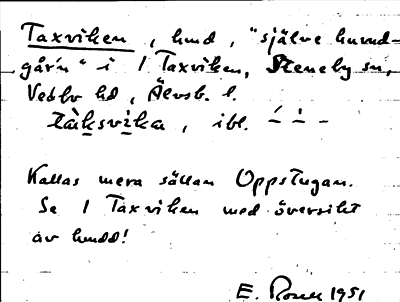 Taxviken, hmd, "själve huvud-
går'n" i 1 Taxviken, Steneby sn,
Vedbo hd, Älvsb. l.
tàksvìka, ibl.
Kallas mera sällan Oppstugan.
Se 1 Taxviken med översikt
av hmdd!
E. 1951